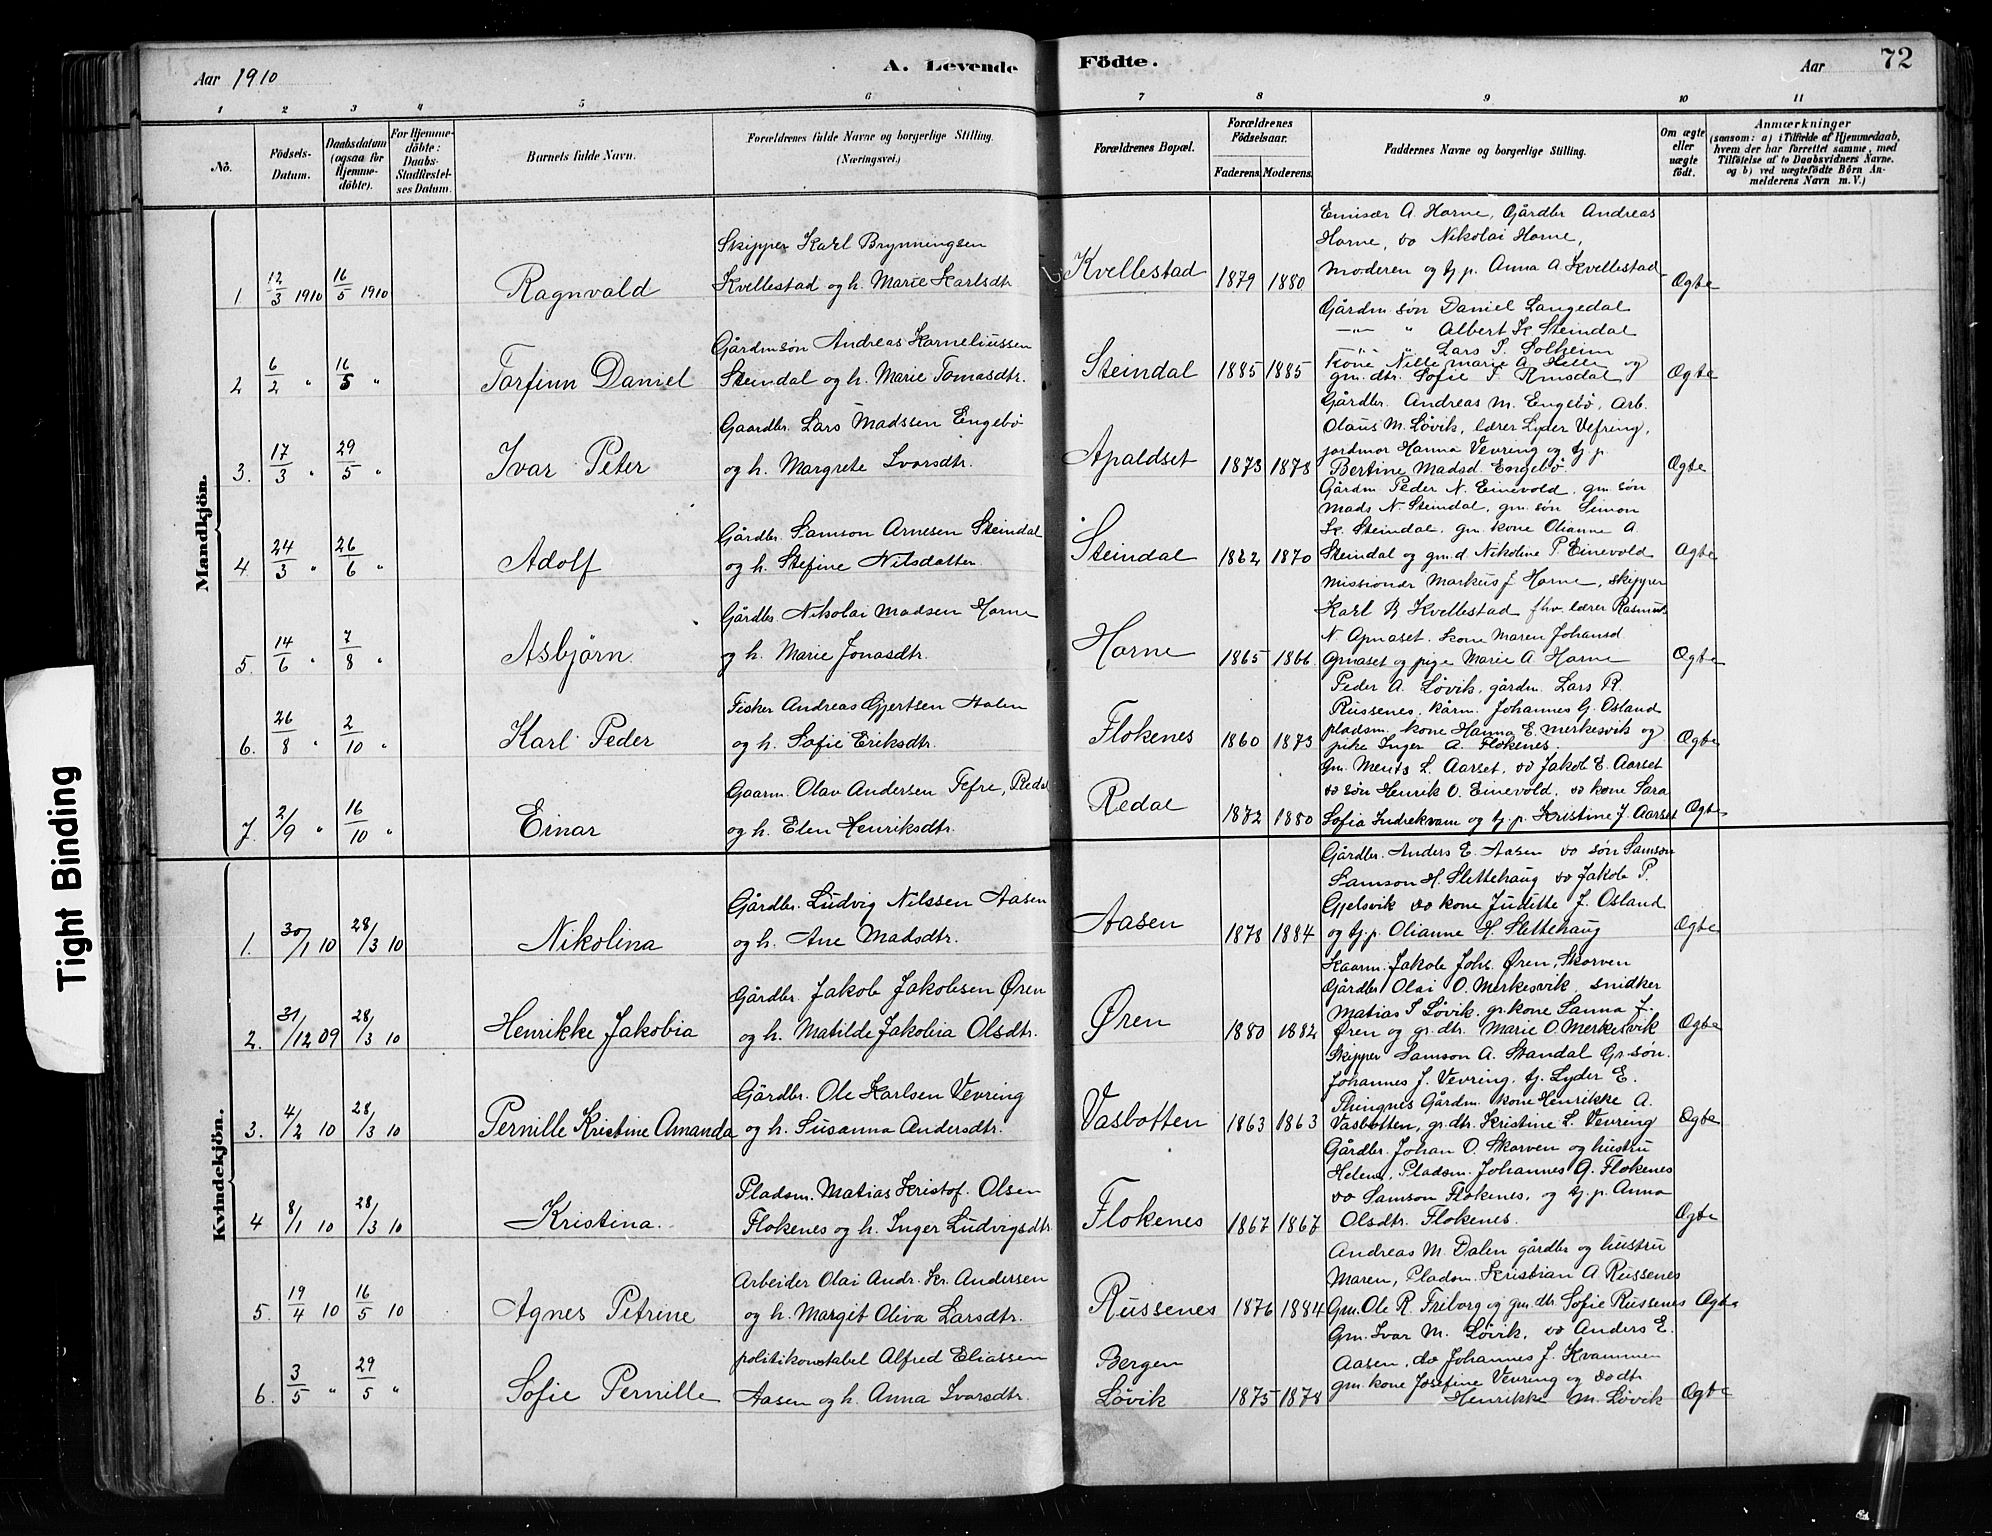 Aar 1910
A. Levende
Födte.
Aar
72
1 2 3 4 5 6 7 8 9 10 11
No.
Födsels-
Datum.
Daabsdatum
(ogsaa for
Hjemme-
döbte).
For Hjemme-
döbte:
Daabs-
StadRestel-
ses Datum.
Barnets fulde Navn.
Forældrenes fulde Navne og borgerlige Stilling.
(Næringsvei.)
Forældrenes Bopæl.
Forældrenes
Födselsaar.
Faderens. Moderens.
Faddernes Navne og borgerlige Stilling.
Om ægte
eller
uægte
födt.
Anmærkninger
(saasom: a) i Tilfælde af Hjemmedaab,
hvem der har forrettet samme, med
Tilföielse af to Daabsvidners Navne.
og b) ved uægtefödte Börn An-
melderens Navn m. V.)
Mandkjön.
1 12/3 1910 16/5 1910 Ragnvald
Skipper Karl Brynningsen
Kvellestad og h. Marie Karlsdtr
Kvellestad 1879 1880
Emisær A. Horne, Gårdbr Andreas
Horne, do Nikolai Horne,
moderen og tj. p. Anna A Kvellestad
Ægte
2 6/2 " 16/5 " Torfinn Daniel
Gårdmsøn Andreas Korneliussen
Steindal og h. Marie Tomasdtr.
Steindal 1885 1885
Gårdm søn Daniel Langedal
—"— " Albert K Steindal
" " Lars T. Solheim
Kone Nille marie A. og
gm. dtr. Sofie T.
Ægte
3. 17/3 " 29/5 " Ivar Peter
Gaardbr. Lars Madssen Engebö
og h. Margrete Ivarsdtr.
Apaldset 1873 1878
Gårdbr. Andreas M. Engebö, Arb.
Olaus M. Lövik, lærer Lyder Vefring,
jordmor Hanna Vevring og tj. p.
Bertine Madsd. Engebö
Ægte
4 24/3 " 26/6 " Adolf
Gårdbr. Samson Arnesen Steindal
og h. Stefine Nilsdatter.
Steindal 1862 1870
Gårdm Peder N. Einevold, gm. søn
Mads N. Steindal, gm. søn Simon
K. Steindal, gm. kone Olianne A.
Steindal og gm. d Nikoline P. Einevold
Ægte
5. 14/6 " 7/8 " Asbjørn.
Gårdbr. Nikolai Madsen Horne
og h. Marie Jonasdtr.
Horne 1865 1866
Missionær Markus J Horne, skipper
Karl B Kvellestad fhv. lærer Rasmus
N Apnaset, kone Maren Johansd.
Apnaset og pige Marie A Horne
Ægte
6. 26/8 " 2/10 " Karl Peder
Fisker Andreas Gjertsen Holen
og h. Sofie Eriksdtr.
Flokenes 1860 1873
Peder A. Lövik, gårdm. Lars R.
Russenes, kårm. Johannes G. Osland
pladsm. kone Hanna E. Merkesvik og
pike Inger A. Flokenes.
Ægte
7. 2/9 " 16/10 " Einar
Gaarm. Olav Andersen Tefre, Redal
og h. Elen Henriksdtr.
Redal 1872 1880
Gm. Ments L. Aarset, do Jakob E. Aarset
do søn Henrik O. Einevold, do kone Sara
Sofia Indrekvam og tj. p. Kristine J. Aarset
Ægte
Kvindekjön.
1. 30/1 10 28/3 10 Nikolina
Gårdbr. Ludvig Nilssen Aasen
og h. Ane Madsdtr.
Aasen 1878 1884
Gårdbr. Anders E. Aasen do søn Samson
Samson H. Slettehaug do Jakob P.
Gjelsvik do kone Juditte J. Osland
og tj. p. Olianne H Slettehaug
Ægte
2. 31/12 09 28/3 10 Henrikke Jakobia
Gårdbr. Jakob Jakobsen Øren
og h. Matilde Jakobia Olsdtr.
Øren 1880 1882
Kaarm. Jakob Johs. Øren, Skorven
Gårdbr Olai O. Merkesvik, snidker
Matias S Lövik, gr. kone Sanna J.
Øren og gr. dtr. Marie O. Merkesvik
Ægte
3. 4/2 10 28/3 10 Pernille Kristine Amanda
Gårdbr. Ole Karlsen Vevring
og h. Susanna Andersdtr.
Vasbotten 1863 1863
Skipper Samson A. Standal Gr. søn.
Johannes J. Vevring, tj. Lyder E.
Thingnes Gårdm. kone Henrikke A.
Vasbotten, gr. dtr. Kristine L. Vevring
Ægte
4 8/1 10 28/3 10 Kristina.
Pladsm. Matias Kristof. Olsen
Flokenes og h. Inger Ludvigsdtr.
Flokenes 1867 1867
Gårdbr. Johan O. Skorven og hustru
Helene, Pladsm. Johannes G. Flokenes
do Samson Flokenes, og tj. p. Anna
Olsdtr. Flokenes.
Ægte
5. 19/4 10 16/5 10 Agnes Petrine
Arbeider Olai Andr. Kr. Andersen
og h. Margit Oliva Larsdtr.
Russenes 1876 1884
Andreas M. Dalen gårdbr og hustru
Maren, Pladsm. Kristian A Russenes
Gm. Ole R. Friborg og gm. dtr. Sofie Russenes
Ægte
6. 3/5 " 29/5 " Sofie Pernille
politikonstabel Alfred Eliassen
Aasen og h. Anna Ivarsdtr.
Bergen
Lövik 1875 1878
Gm. Ivar M. Lövik, do Anders E.
Aasen, do Johannes J. Kvammen
gm. kone Josefine Vevring og do dtr
Henrikke M. Lövik
Ægte
Tight Binding